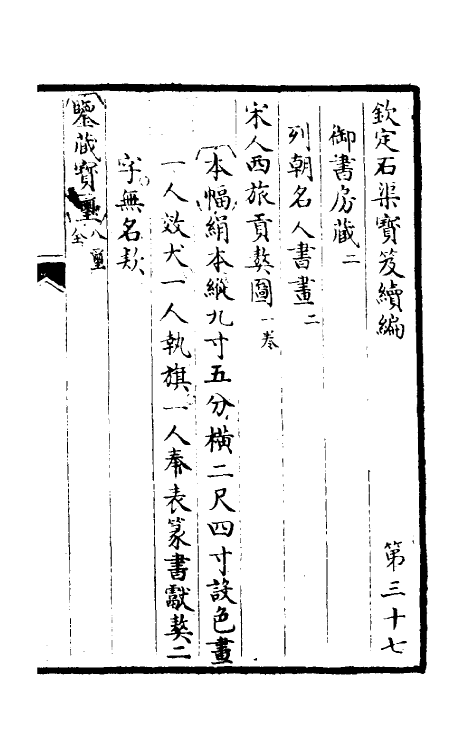 欽定石渠寶笈續編　第三十七
御書房藏二
列朝名人書畫二
宋人西旅貢獒圖一卷
本幅絹本縱九寸五分橫二尺四寸設色畫
一人效犬一人執旗一人奉表篆書獻獒二
字無名款
鑒藏寶璽八璽全